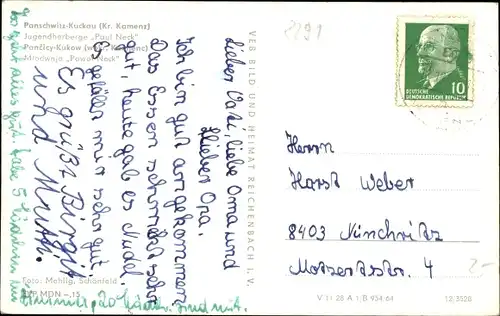 Panschwitz-Kuckau (Kr. Kamenz)
Jugendherberge „Paul Neck"
Pančicy-Kukow (wokr. Kamjenc)
2291
Lieber Vati, liebe Oma und
lieber Opa.
Ich bin gut angekommen
Das Essen schmeckt sehr
gut, heute gab es Nudel.
Es gefällt mir sehr gut.
Es grüßt Birgit
und Mutti.
VEB BILD UND HEIMAT REICHENBACH I. V.
10
DEUTSCHE
DEMOKRATISCHE REPUBLIK
Herrn
Horst Weber
8403 Nünchritz
Mozartstr. 4
2-
Foto: Mehlig, Schönfeld
EVP MDN -,15
V 11 28 A 1 B 934/64
12/3528